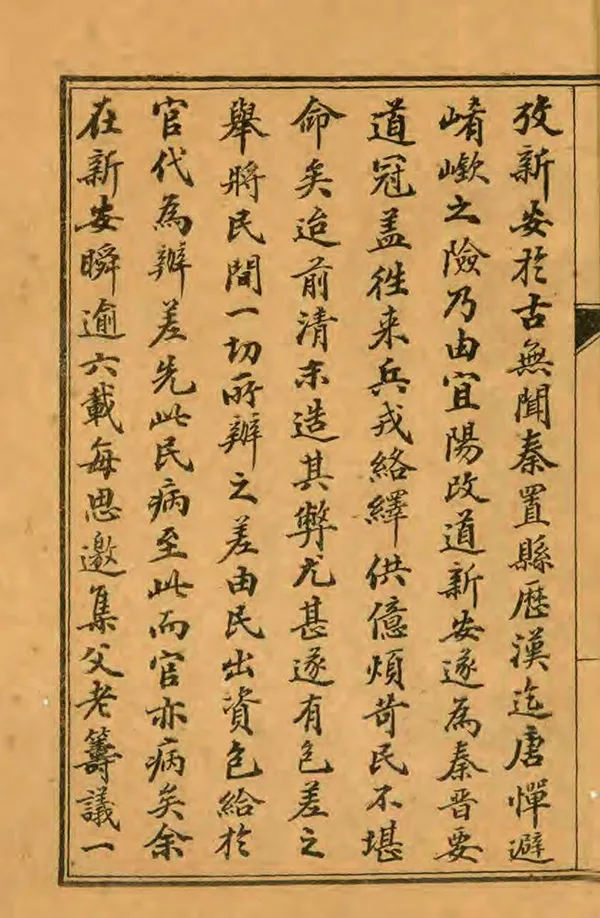 攷新安於古無聞秦置縣歷漢迄唐憚避
崤嶔之險乃由宜陽改道新安遂為秦晋要
道冠盖徃来兵戎絡繹供億煩苛民不堪
命矣迨前清末造其弊尤甚遂有包差之
舉將民間一切所辦之差由民出資包給於
官代為辦差先此民病至此而官亦病矣余
在新安瞬逾六載每思邀集父老籌議一